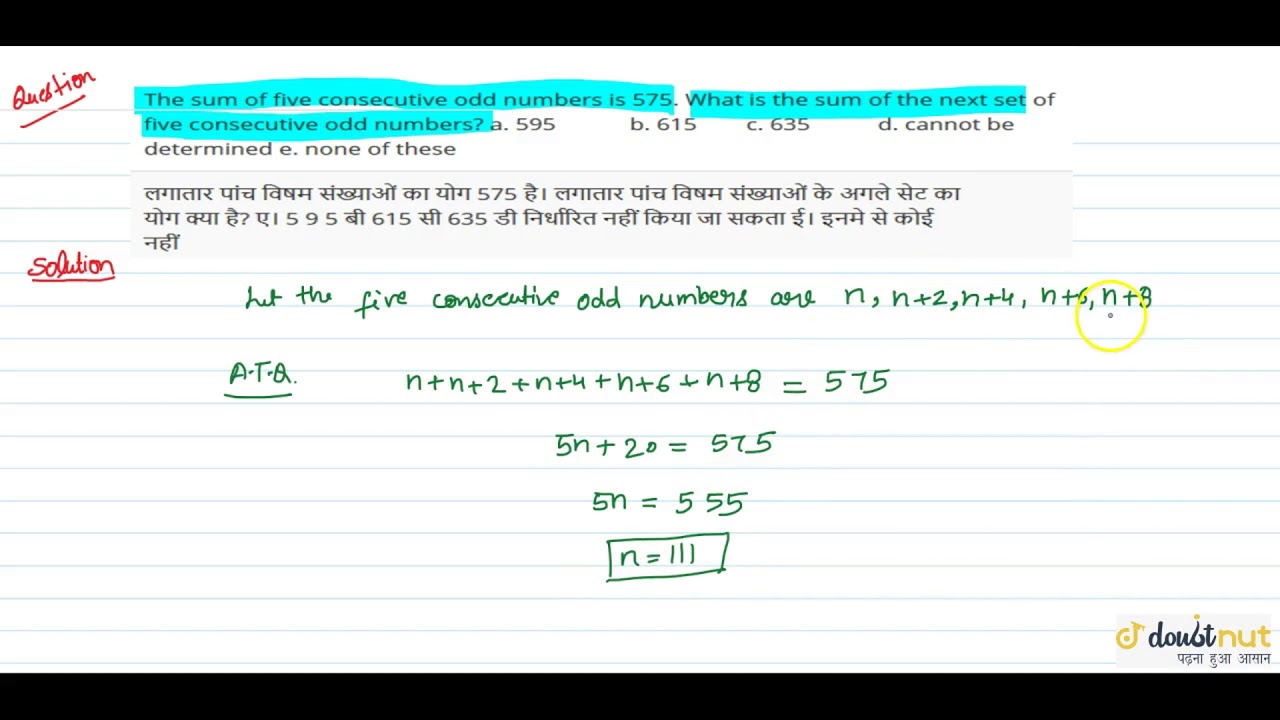 Question
The sum of five consecutive odd numbers is 575. What is the sum of the next set of
five consecutive odd numbers? a. 595 b. 615 c. 635 d. cannot be
determined e. none of these
लगातार पांच विषम संख्याओं का योग 575 है। लगातार पांच विषम संख्याओं के अगले सेट का
योग क्या है? ए। 5 9 5 बी 615 सी 635 डी निर्धारित नहीं किया जा सकता ई। इनमे से कोई
नहीं
Solution
Let the five consecutive odd numbers are n, n+2, n+4, n+6, n+8
A.T.Q.
n+n+2+n+4+n+6+n+8 = 575
5n+20 = 575
5n = 555
n=111
doubtnut
पढ़ना हुआ आसान